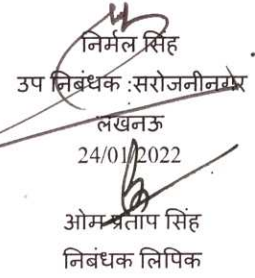 निर्मल सिंह
उप निबंधक :सरोजनीनगर
लखनऊ
24/01/2022
ओम प्रताप सिंह
निबंधक लिपिक